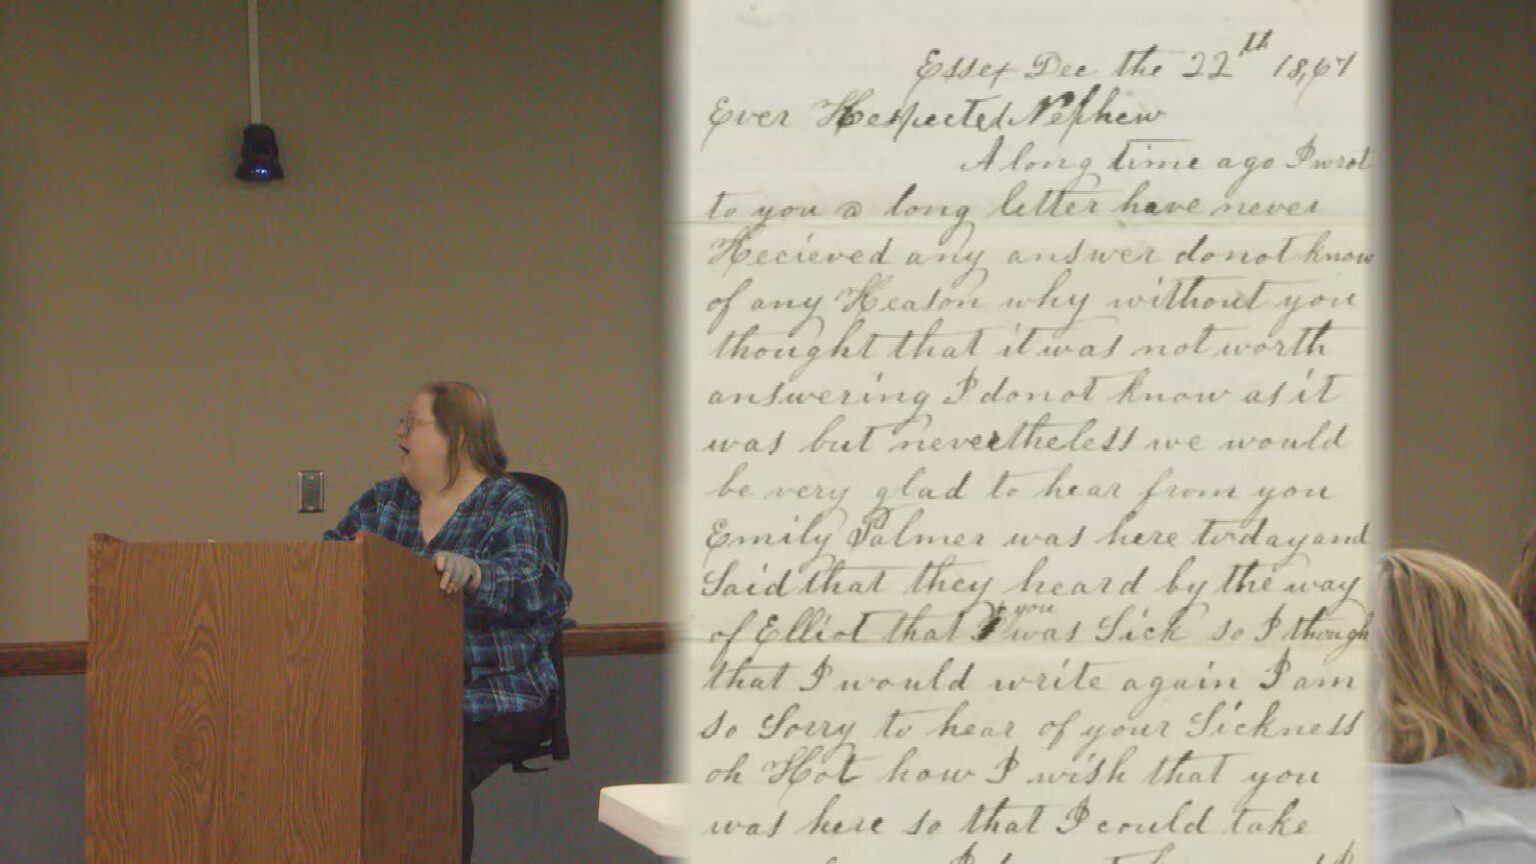 Essex Dec the 22th 1867
Ever Respected Nephew
A long time ago I wrot
to you a long letter have never
Recieved any answer donot know
of any Reason why without you
thought that it was not worth
answering I donot know as it
was but nevertheless we would
be very glad to hear from you
Emily Palmer was here to day and
Said that they heard by the way
of Elliot that you was Sick so I though
that I would write again I am
so Sorry to hear of your Sickness
oh how I wish that you
was here so that I could take